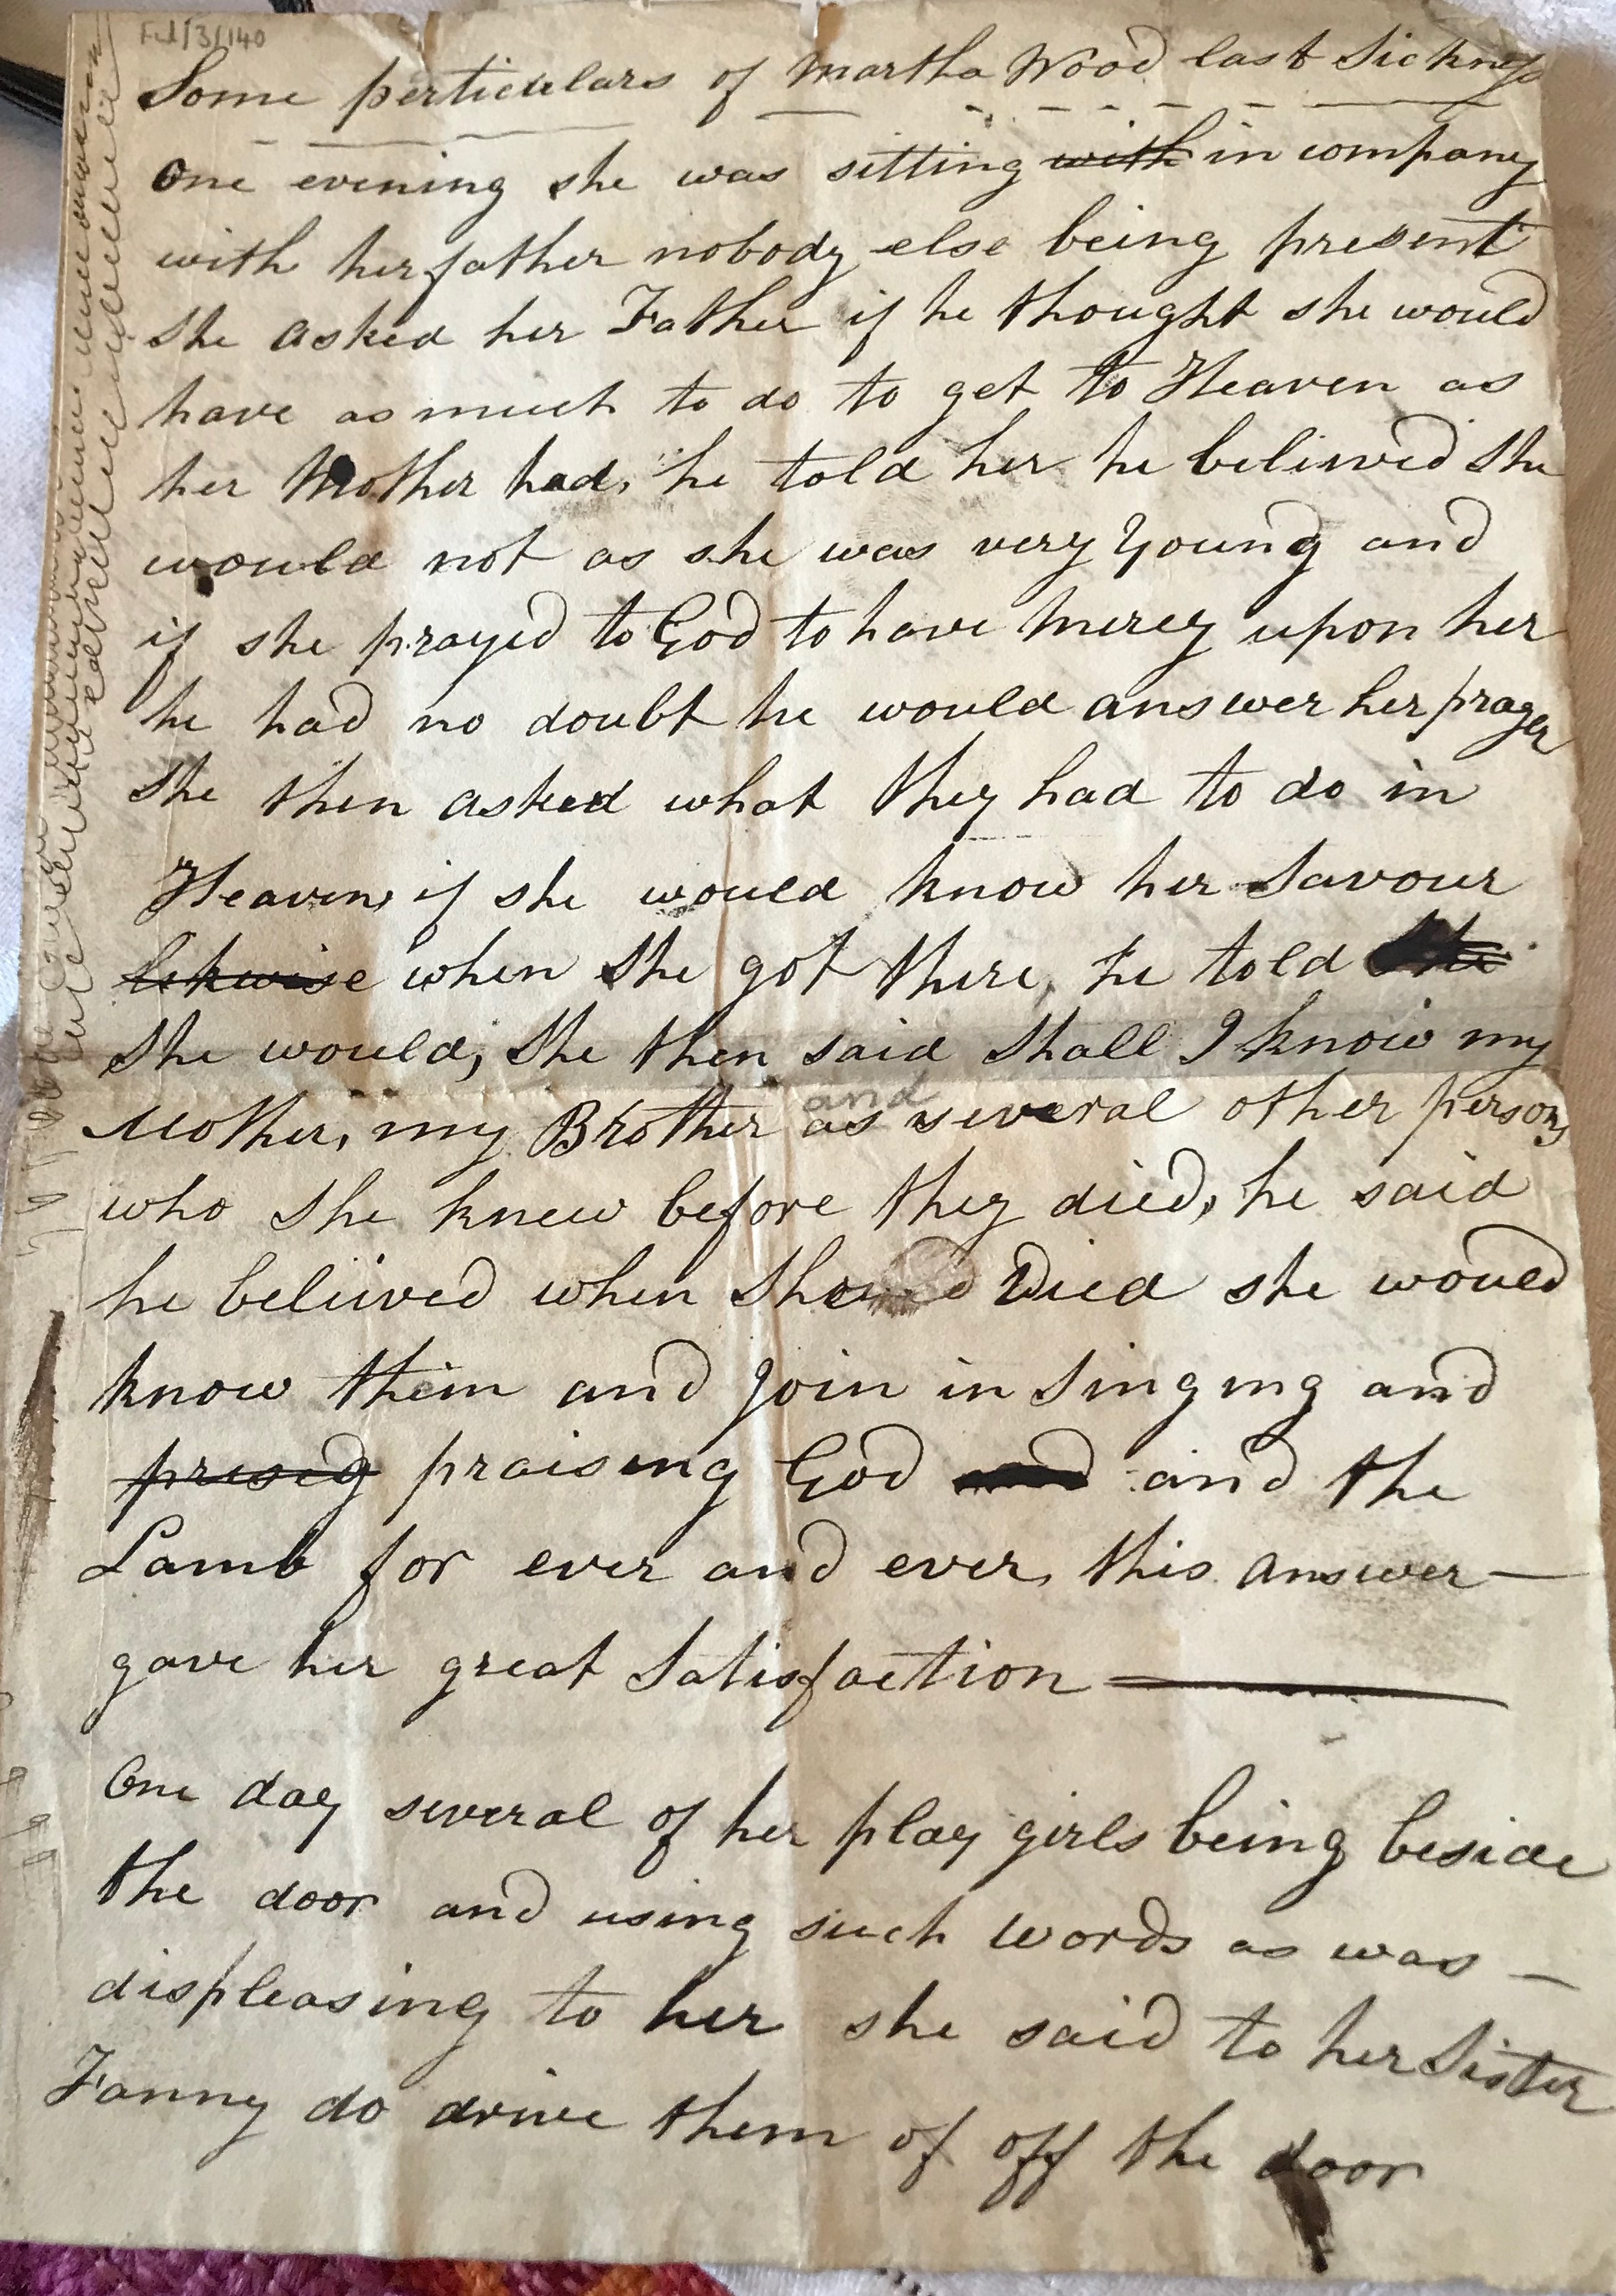 Fel/3/140
Some perticulars of Martha Wood last Sickness
One evening she was sitting with in company
with her father nobody else being present
She asked her Father if he thought she would
have as much to do to get to Heaven as
her Mother had, he told her he believed She
would not as she was very Young and
if she prayed to God to have mercy upon her
he had no doubt he would answer her prayer
She then asked what they had to do in
Heaven, if she would know her Savour
likwise when She got there, he told
She would, She then said Shall I know my
Mother, my Brother as several other persons
and
who She knew before they died, he said
he believed when She Died she would
know them and join in Singing and
praising God and the
Lamb for ever and ever, this answer —
gave her great Satisfaction —
One day several of her play girls being beside
the door and using such words as was —
displeasing to her she said to her Sister
Fanny do drive them of off the door